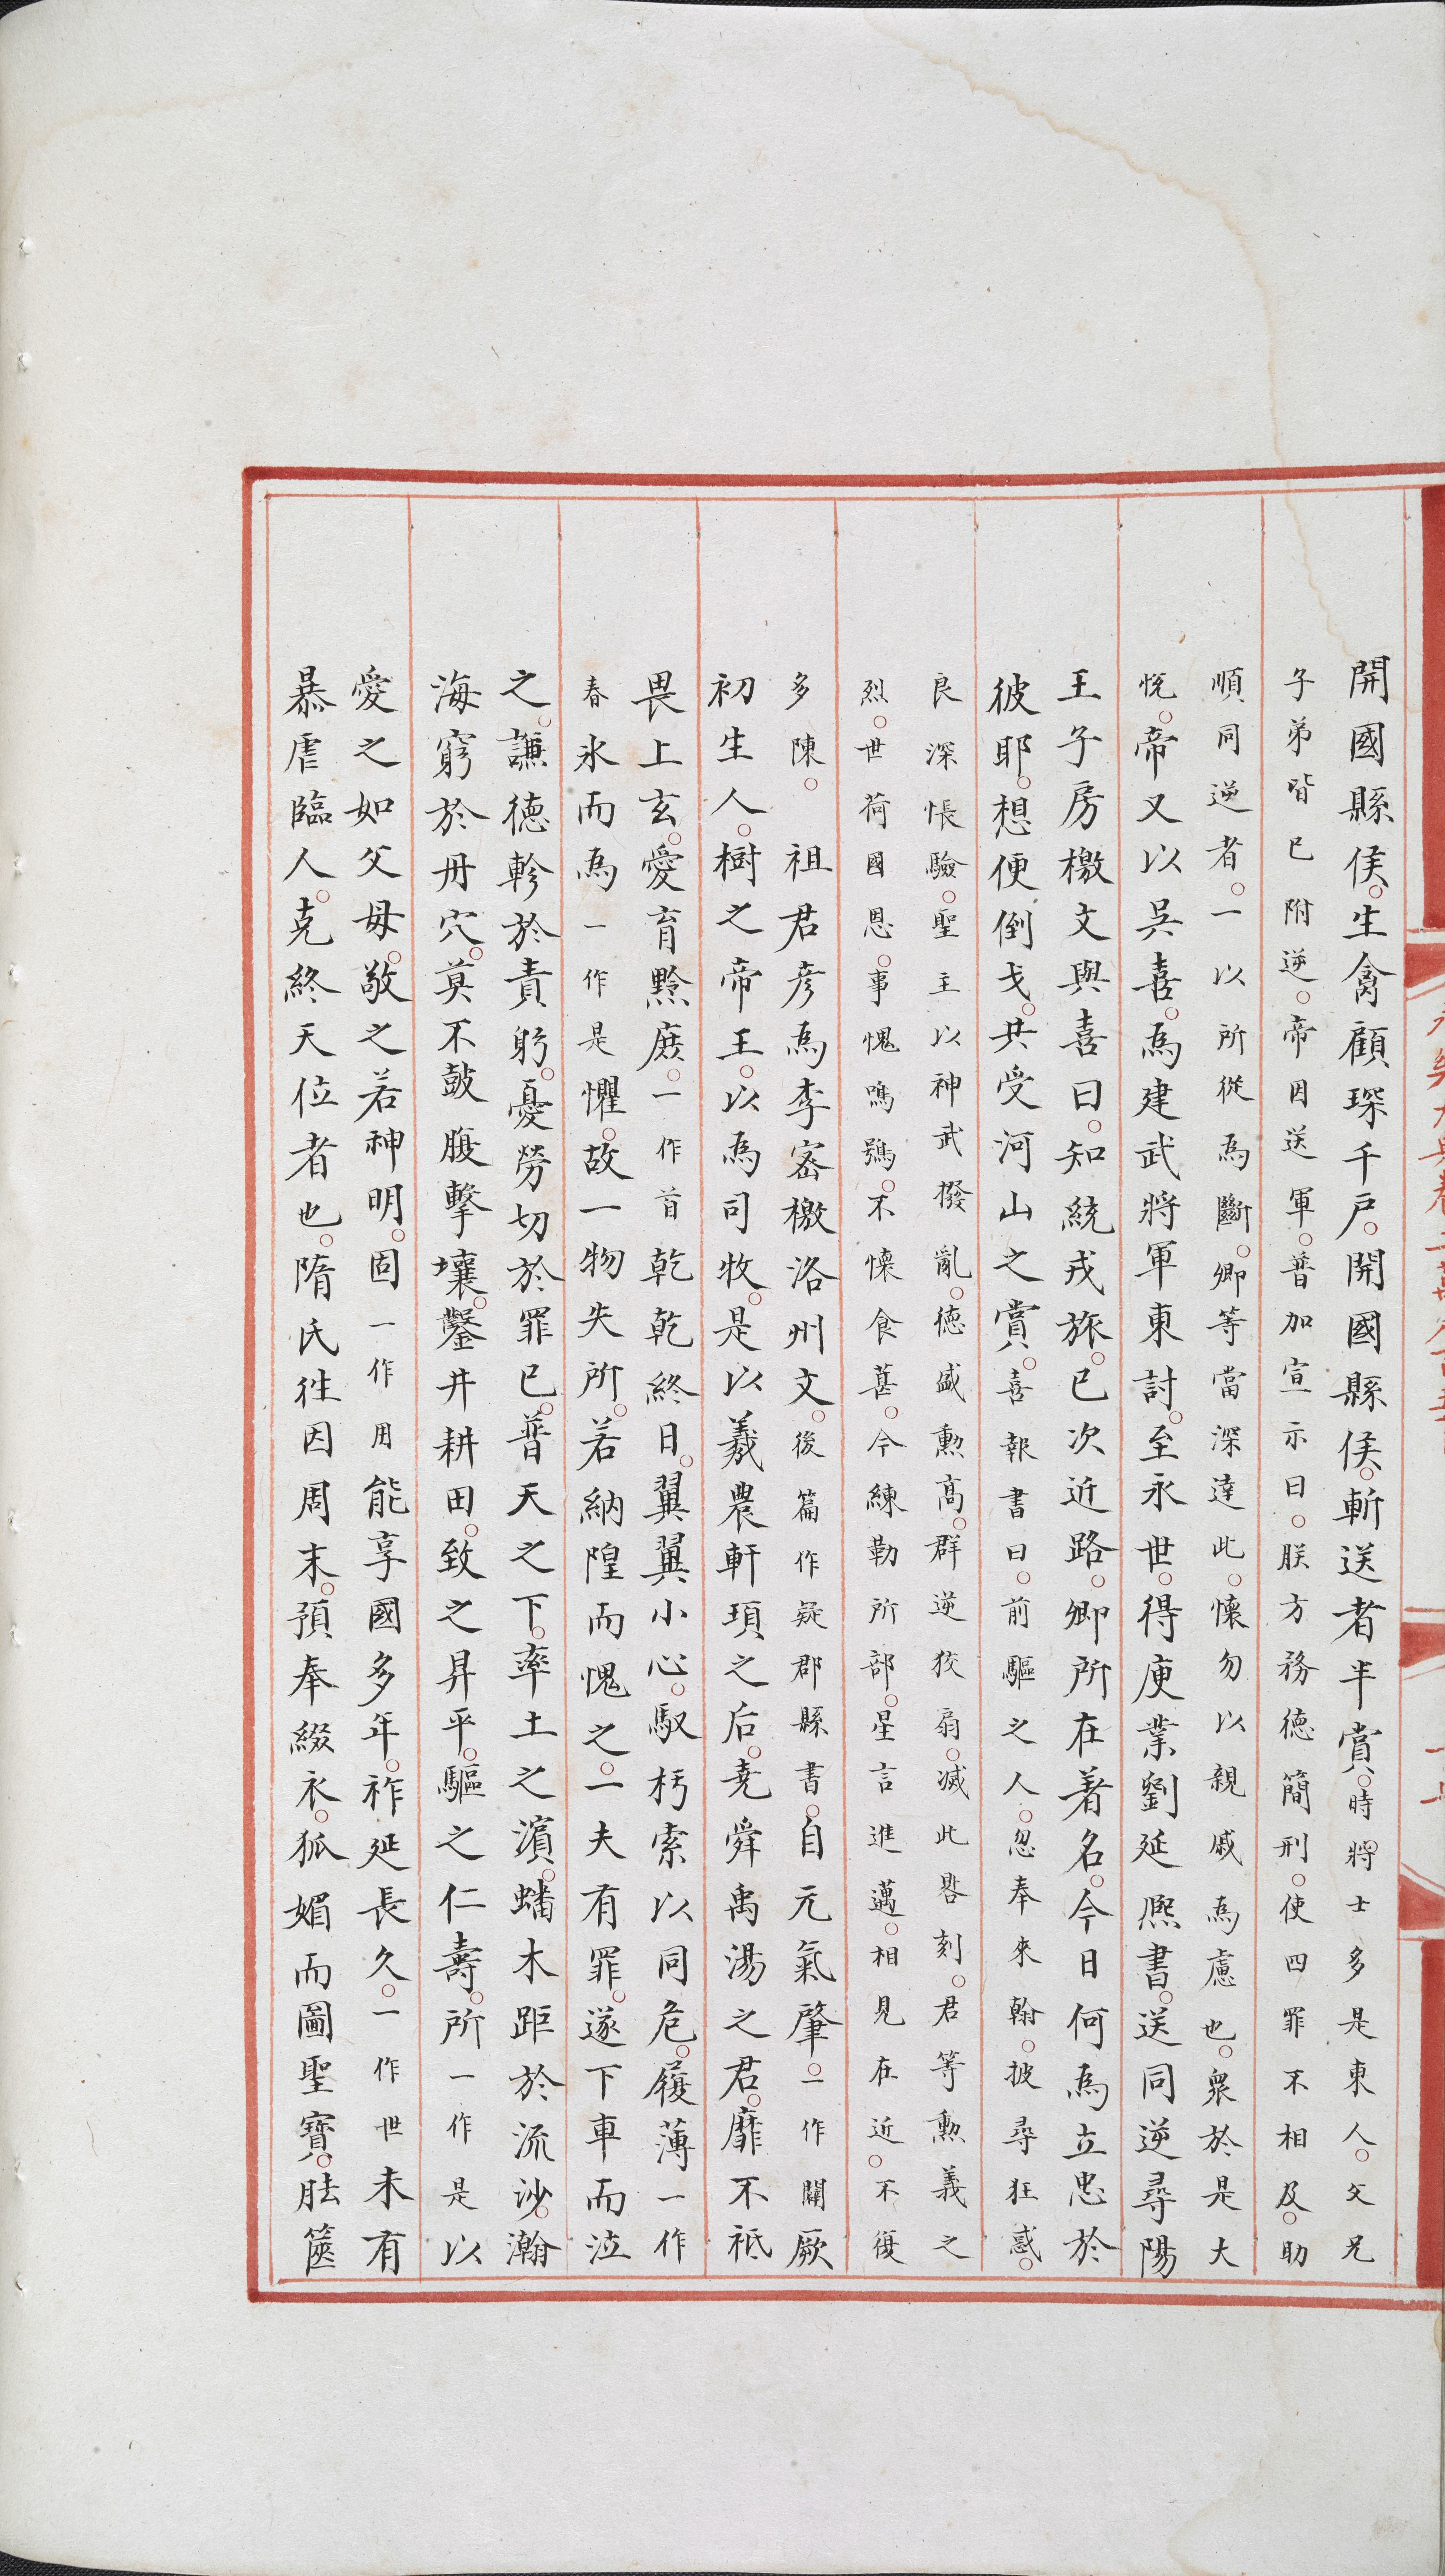 開國縣侯○生禽顧琛千戶○開國縣侯○斬送者半賞○時將士多是東人○父兄
子弟皆已附逆○帝因送軍○普加宣示曰○朕方務德簡刑○使四罪不相及○助
順同逆者○一以所從為斷○卿等當深達此○懷勿以親戚為慮也○衆於是大
悅○帝又以吳喜○為建武將軍東討○至永世○得庾業劉延熙書○送同逆尋陽
王子房檄文與喜曰○知統戎旅○已次近路○卿所在著名○今日何為立忠於
彼耶○想便倒戈○共受河山之賞○喜報書曰○前驅之人○忽奉來翰○披尋狂惑○
良深悵驗○聖主以神武撥亂○德盛勲高○群逆狡扇○滅此晷刻○君等勲義之
烈○世荷國恩○事愧鳴鴞○不懷食葚○今練勒所部○星言進邁○相見在近○不復
多陳○　祖君彦為李密檄洛州文○後篇作疑郡縣書○自元氣肇○一作闢厥
初生人○樹之帝王○以為司牧○是以羲農軒頊之后○堯舜禹湯之君○靡不祗
畏上玄○愛育黔庶○一作首乾乾終日○翼翼小心○馭朽索以同危○履薄一作
春氷而為一作是懼○故一物失所○若納隍而愧之○一夫有罪○遂下車而泣
之○謙德軫於責躬○憂勞切於罪已○普天之下○率土之濱○蟠木距於流沙○瀚
海窮於丹穴○莫不鼓腹擊壤○鑿井耕田○致之昇平○驅之仁壽○所一作是以
愛之如父母○敬之若神明○固一作用能享國多年○祚延長久○一作世未有
暴虐臨人○克終天位者也○隋氏徃因周末○預奉綴衣○狐媚而圖聖寶○胠篋